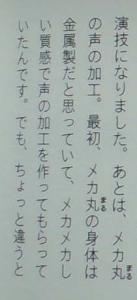 演技になりました。あとは、メカ丸
の声の加工。最初、メカ丸の身体は
金属製だと思っていて、メカメカし
い質感で声の加工を作ってもらって
いたんです。でも、ちょっと違うと
まる
まる